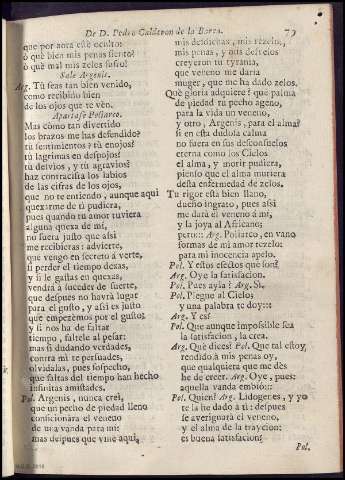 De D. Pedro Calderon de la Barca. 79
que por aora esté oculto:
ò què bien mis penas siento!
ò què mal mis zelos sufro!
Sale Argenis.
Arg. Tù seas tan bien venido,
como recibido bien
de los ojos que te vèn.
Apartase Poliarco.
Mas còmo tan divertido
los brazos me has defendido?
tù sentimientos? tù enojos?
tù lagrimas en despojos?
tù desvios, y tù agravios?
haz contracifra los labios
de las cifras de los ojos,
que no te entiendo, aunque aqui
quexarme de ti pudiera,
pues quando tu amor tuviera
alguna quexa de mi,
no fuera justo que assi
me recibieras: advierte,
que vengo en secreto à verte,
si perder el tiempo dexas,
y si le gastas en quexas,
vendrà à suceder de suerte,
que despues no havrà lugar
para el gusto, y assi es justo
que empezemos por el gusto;
y si nos ha de faltar
tiempo, faltele al pesar:
mas si dudando verdades,
contra mi te persuades,
olvidalas, pues sospecho,
que faltas del tiempo han hecho
infinitas amistades.
Pol. Argenis, nunca creì,
que un pecho de piedad lleno
conficionàra el veneno
de una vanda para mi:
mas despues que vine aqui,
mis desdichas, mis rezelos,
mis penas, y mis desvelos
creyeron tu tyrania,
que veneno me daria
muger, que me ha dado zelos.
Què gloria adquiere? què palma
de piedad tu pecho ageno,
para la vida un veneno,
y otro, Argenis, para el alma?
si en esta dudosa calma
no fuera en sus desconsuelos
eterna como los Cielos
el alma, y morir pudiera,
pienso que el alma muriera
desta enfermedad de zelos.
Tu rigor està bien llano,
dueño ingrato, pues assi
me darà el veneno à mi,
y la joya al Africano;
pero:: Arg. Poliarco, en vano
formas de mi amor rezelo;
para mi inocencia apelo.
Pol. Y estos efectos què son?
Arg. Oye la satisfacion.
Pol. Pues ayla? Arg. Si.
Pol. Plegue al Cielo;
y una palabra te doy:::
Arg. Y es?
Pol. Que aunque impossible sea
la satisfacion, la crea.
Arg. Què dices? Pol. Que tal estoy,
rendido à mis penas oy,
que qualquiera que me dès
he de creer. Arg. Oye, pues:
aquella vanda embiò:::
Pol. Quien? Arg. Lidogenes, y yo
te la he dado à ti: despues
se averiguarà el veneno,
y el alma de la traycion:
es buena satisfacion?
Pol.